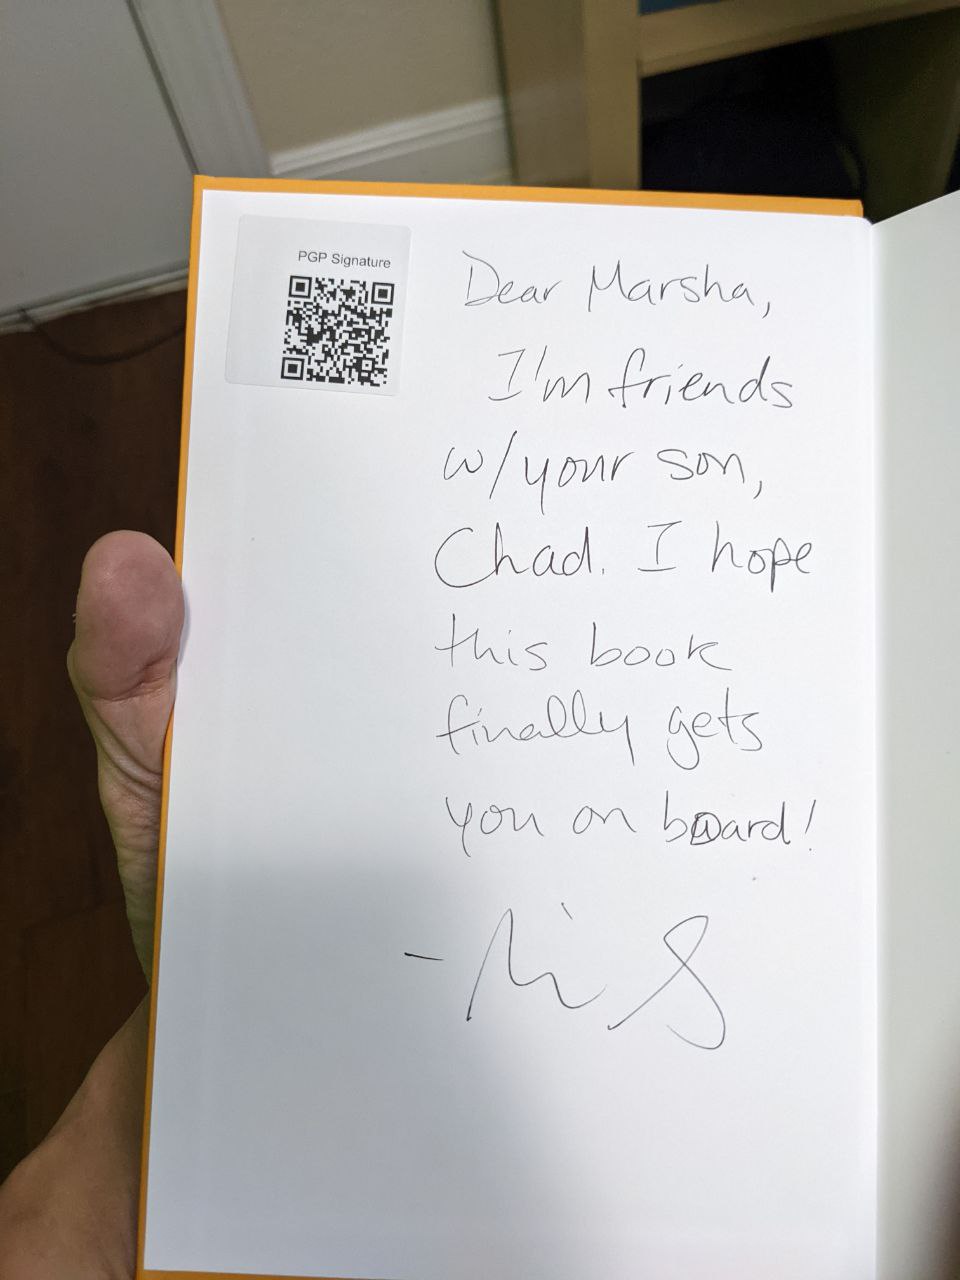 PGP Signature
Dear Marsha,
I'm friends
w/your son,
Chad. I hope
this book
finally gets
you on board!